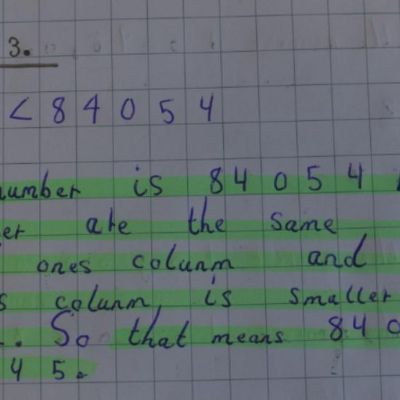 3.
< 8 4 0 5 4
number is 8 4 0 5 4
er are the same
ones colunm and
s colunm, is smaller
. So that means 8 4 0
4 5.